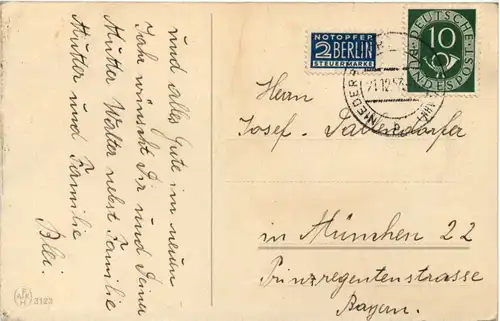 und alles Gute im neuen
Jahr wünscht Dir und Deiner
Mutter Walter nebst Familie
Mutter und Familie
Blei.
NOTOPFER
2 BERLIN
STEUERMARKE
DEUTSCHE
10
BUNDESPOST
Herrn
Josef
in München 22
Prinzregentenstrasse
Bayern.
3123